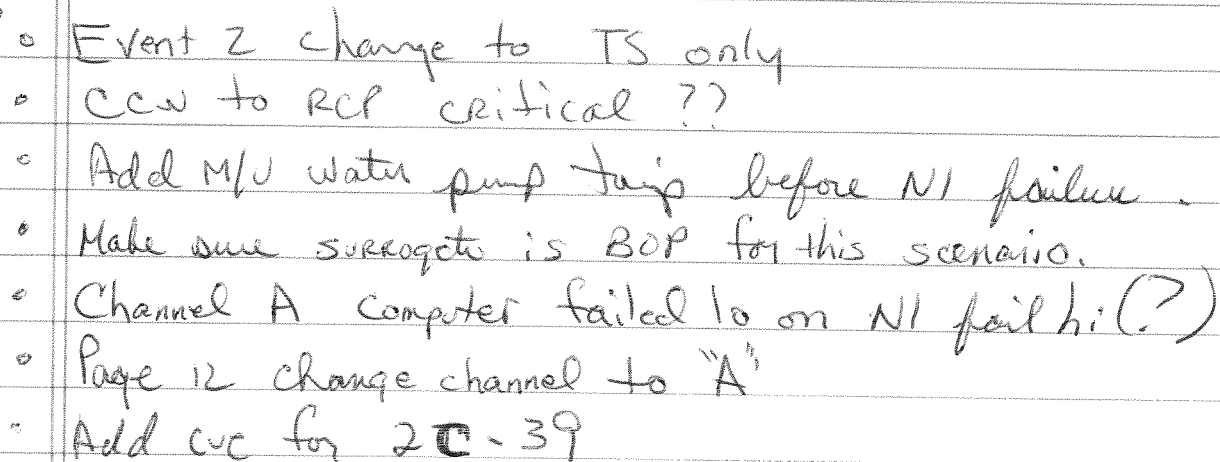 Event 2 change to TS only
CCW to RCP critical ??
Add M/U water pump trip before NI failure.
Make sure surrogate is BOP for this scenario.
Channel A computer failed lo on NI fail hi (?)
Page 12 change channel to "A"
Add cvc for 2C-39